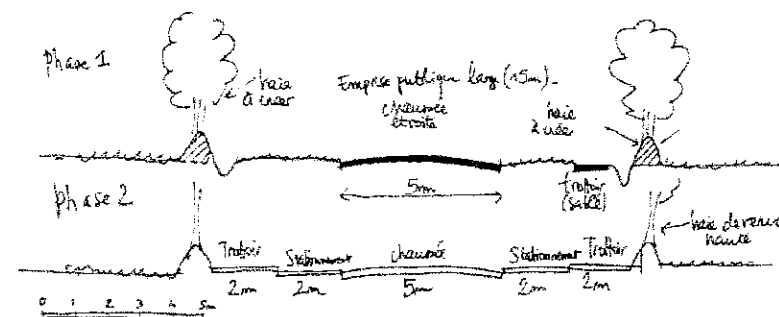 Phase 1
haie
à créer
Emprise publique large (15m)-
chaussée
étroite
haie
à créer
5m
Trottoir
(sablé)
phase 2
haie devenue
haute
Trottoir
Stationnement
chaussée
Stationnement
Trottoir
2m
2m
5m
2m
2m
0 1 2 3 4 5m